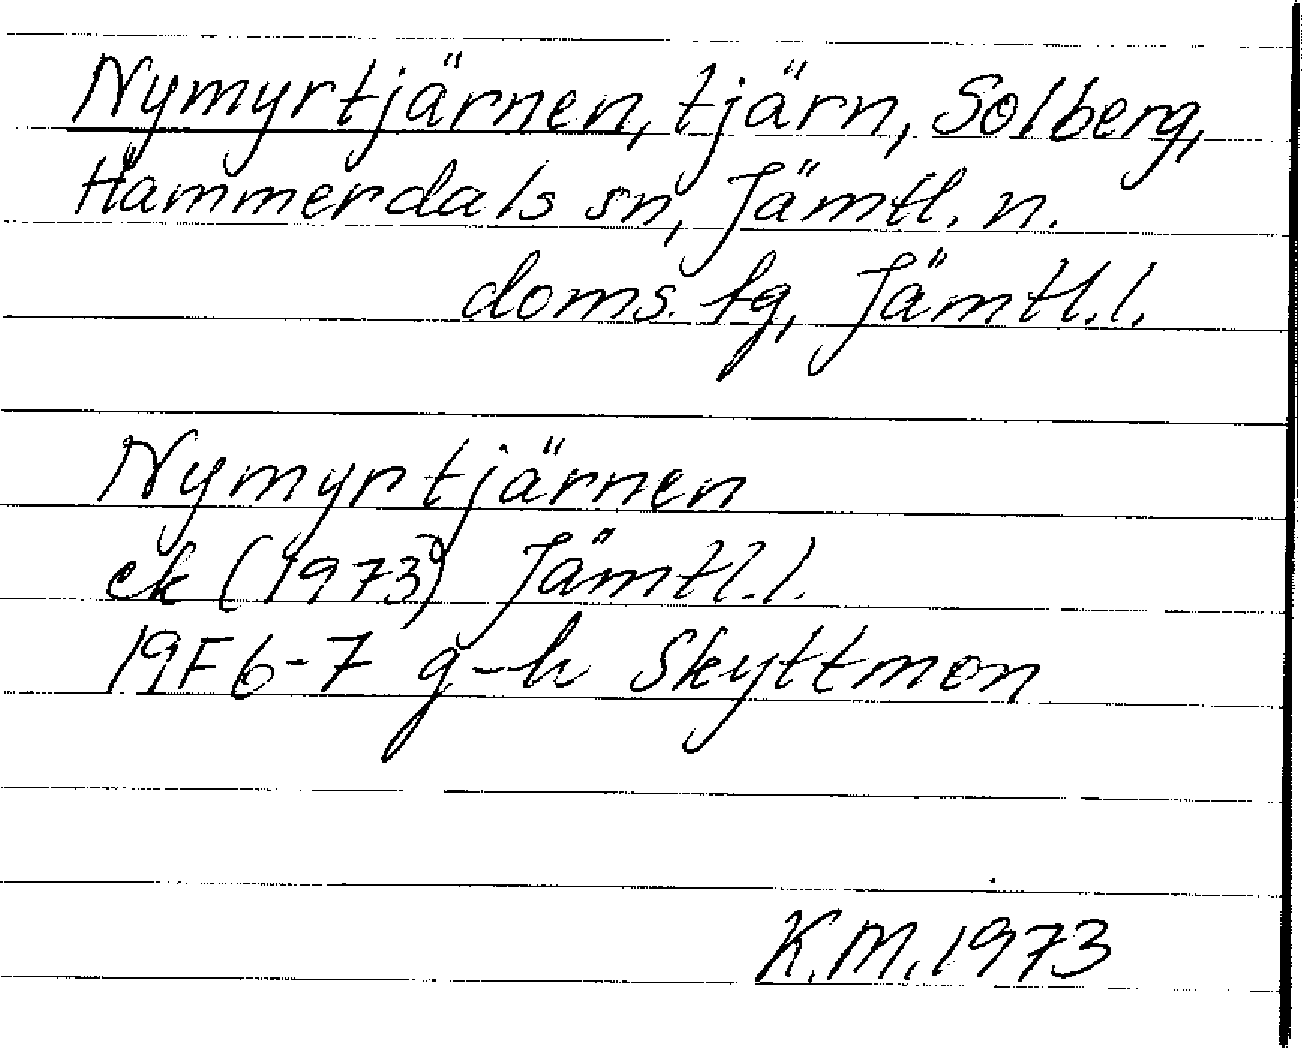 Nymyrtjärnen, tjärn, Solberg,
Hammerdals sn, Jämtl. n.
doms. tg, Jämtl. l.
Nymyrtjärnen
ek (1973) Jämtl. l.
19F 6-7 g-h Skyttmon
K.M. 1973